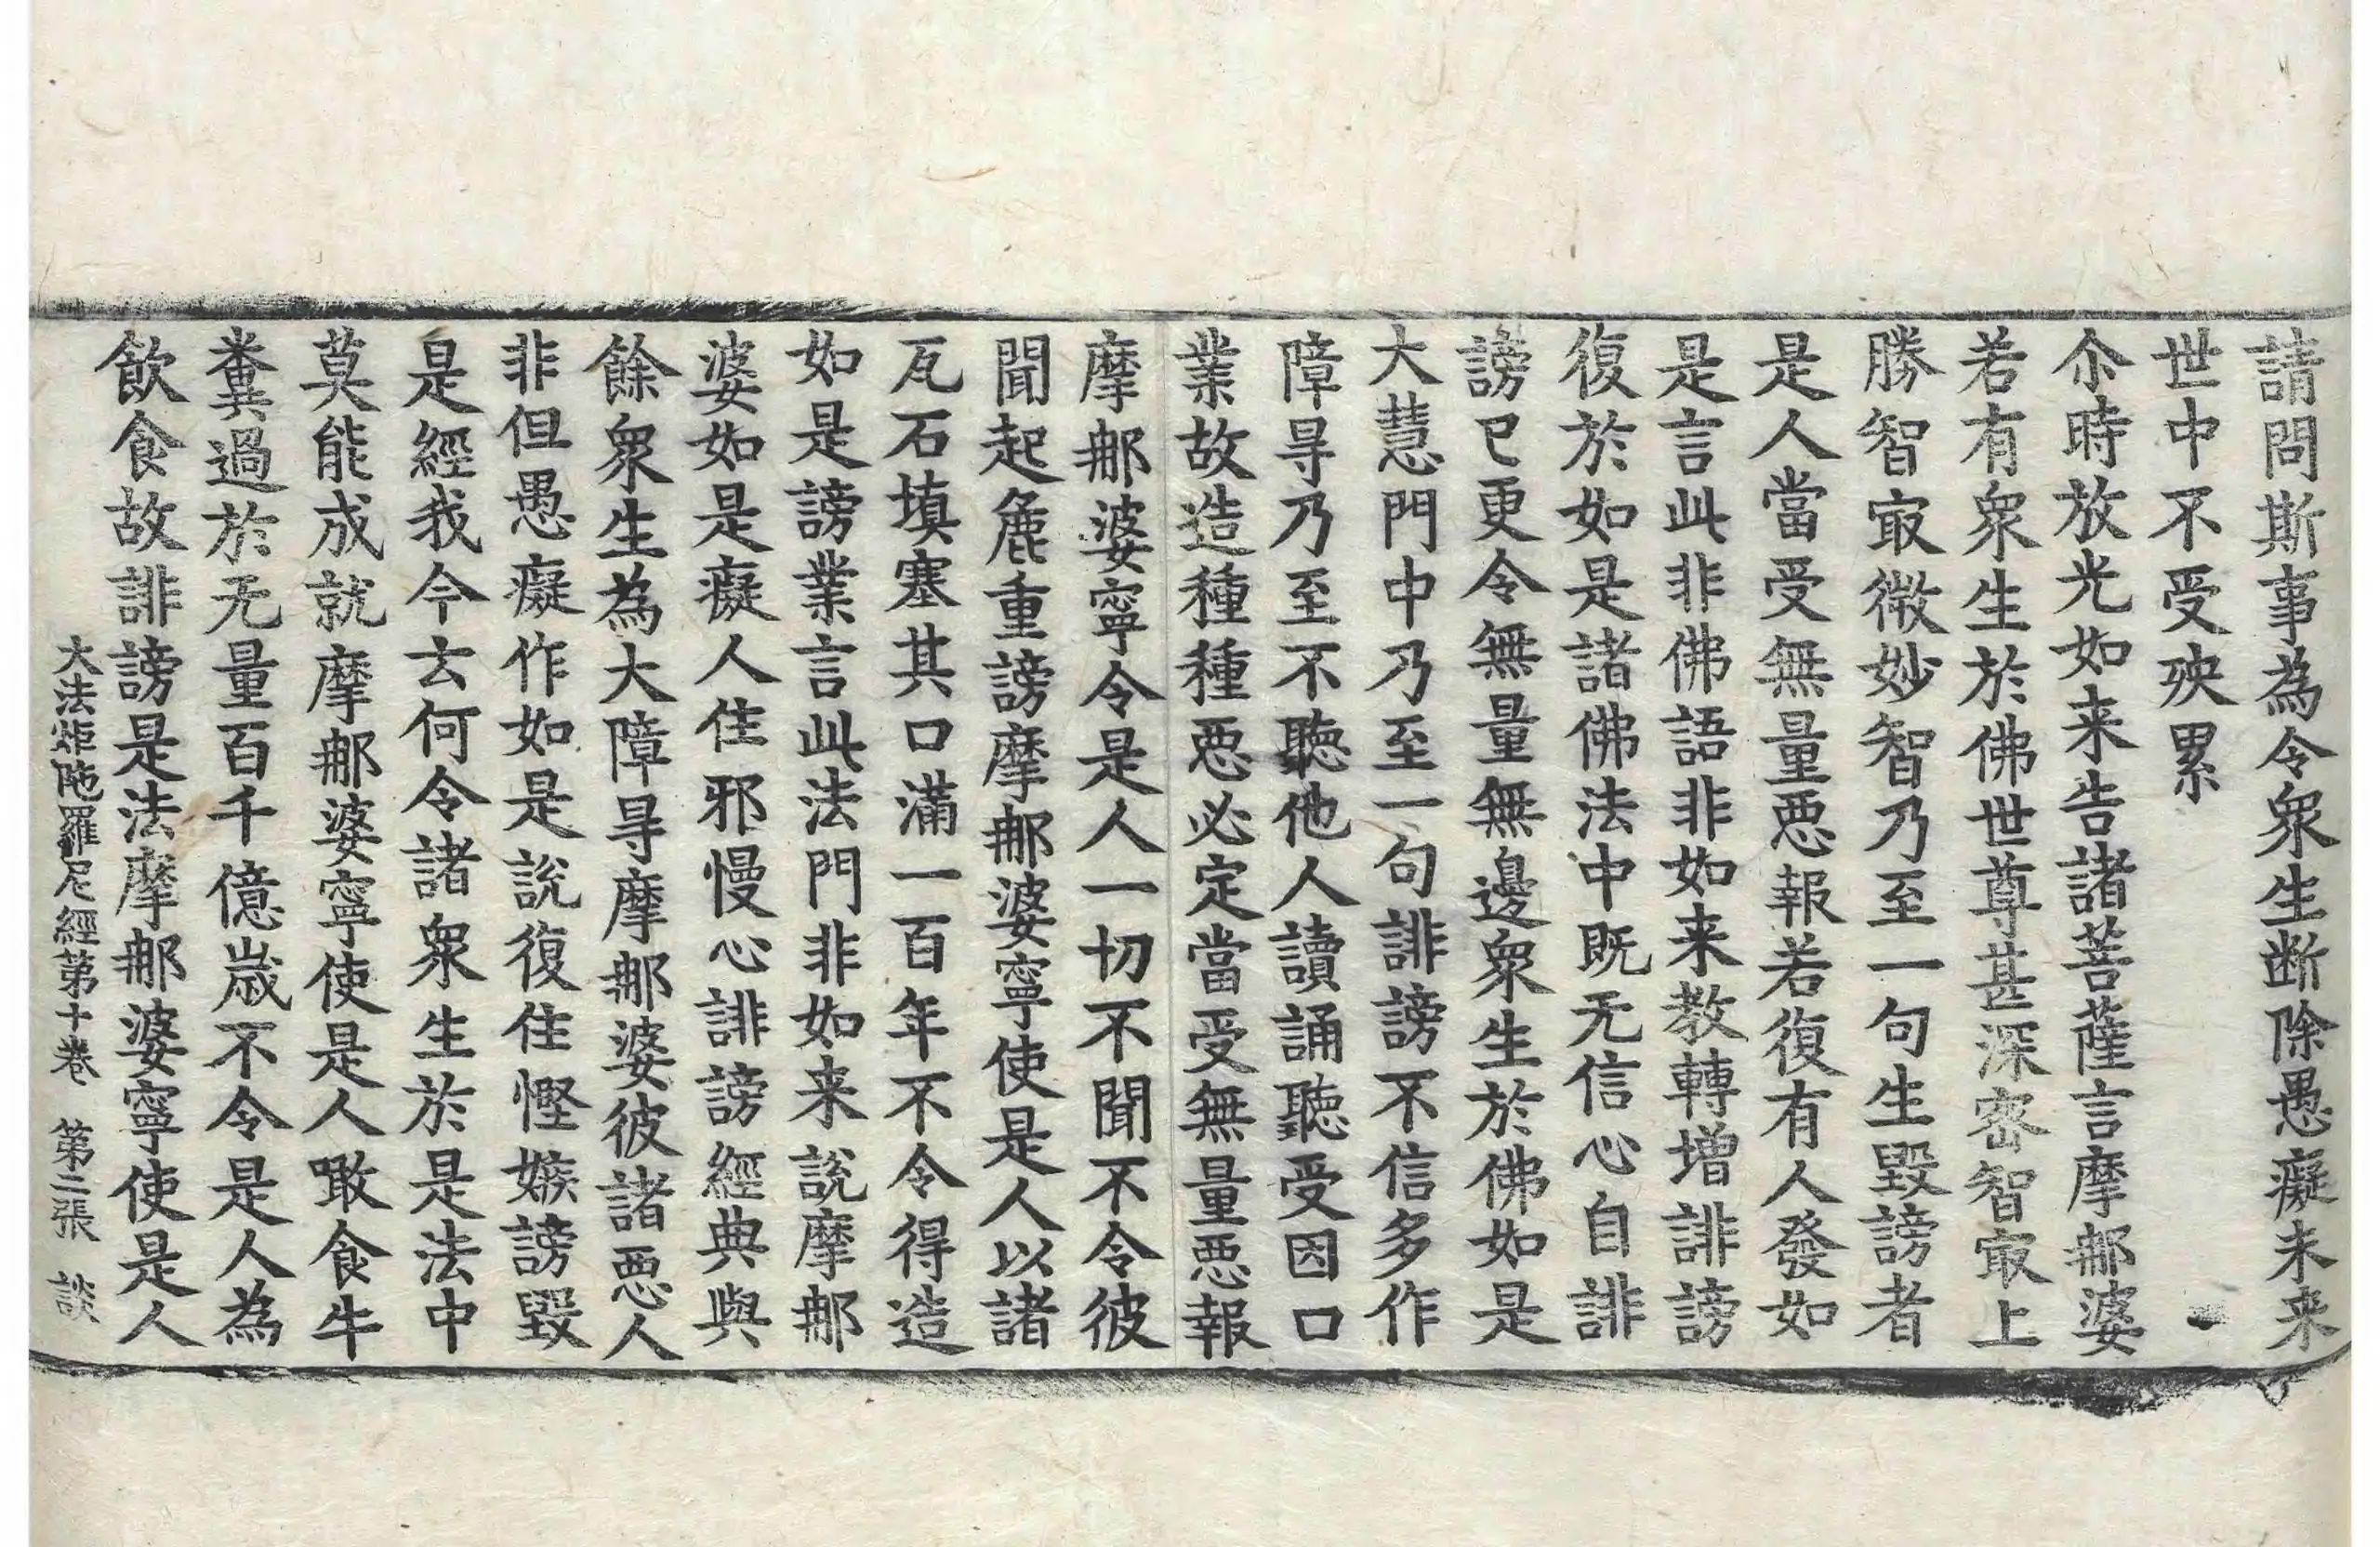 請問斯事為令衆生断除愚癡未来
世中不受殃累
尒時放光如来告諸菩薩言摩㖠婆
若有衆生於佛世尊甚深密智㝡上
勝智㝡微妙智乃至一句生毀謗者
是人當受無量惡報若復有人發如
是言此非佛語非如来教轉增誹謗
復於如是諸佛法中既无信心自誹
謗已更令無量無邊衆生於佛如是
大慧門中乃至一句誹謗不信多作
障㝵乃至不聽他人讀誦聽受因口
業故造種種惡必定當受無量惡報
摩㖠婆寧令是人一切不聞不令彼
聞起麁重謗摩㖠婆寧使是人以諸
瓦石填塞其口滿一百年不令得造
如是謗業言此法門非如来說摩㖠
婆如是癡人住邪慢心誹謗經典與
餘衆生為大障㝵摩㖠婆彼諸惡人
非但愚癡作如是說復住慳嫉謗毀
是經我今云何令諸衆生於是法中
莫能成就摩㖠婆寧使是人噉食牛
糞過於无量百千億歲不令是人為
飲食故誹謗是法摩㖠婆寧使是人
大法炬陁羅尼經第十卷 第二張 談